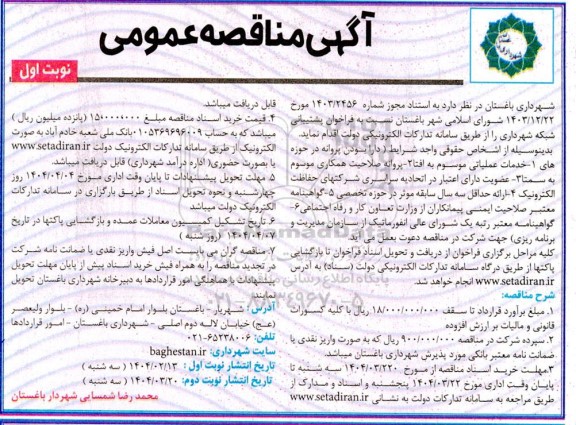 آگهی مناقصه عمومی
نوبت اول
شهرداری باغستان در نظر دارد به استناد مجوز شماره ۱۴۰۳/۲۴۵۶ مورخ
۱۴۰۳/۱۲/۲۲ شورای اسلامی شهر باغستان نسبت به فراخوان پشتیبانی
شبکه شهرداری را از طریق سامانه تدارکات الکترونیکی دولت اقدام نماید.
بدینوسیله از اشخاص حقوقی واجد شرایط ( دارا بودن پروانه در حوزه
های ۱-خدمات عملیاتی موسوم به افتا۲-پروانه صلاحیت همکاری موسوم
به سمتا۳- عضویت دارای اعتبار در اتحادیه سراسری شرکتهای حفاظت
الکترونیک ۴-ارائه حداقل سه سال سابقه موثر در حوزه تخصصی ۵-گواهینامه
معتبر صلاحیت ایمنی پیمانکاران از وزارت تعاون کار و رفاه اجتماعی۶-
گواهینامه معتبر رتبه یک شورای عالی انفورماتیک از سازمان مدیریت و
برنامه ریزی) جهت شرکت در مناقصه دعوت بعمل می آید.
کلیه مراحل برگزاری فراخوان از دریافت و تحویل اسناد فراخوان تا بازگشایی
پاکتها از طریق درگاه سامانه تدارکات الکترونیکی دولت (ستاد) به آدرس
www.setadiran.ir انجام خواهد شد.
شرح مناقصه:
۱. مبلغ برآورد قرارداد تا سقف ۱۸/۰۰۰/۰۰۰/۰۰۰ ریال با کلیه کسورات
قانونی و مالیات بر ارزش افزوده
۲. سپرده شرکت در مناقصه ۹۰۰/۰۰۰/۰۰۰ ریال که به صورت واریز نقدی یا
ضمانت نامه معتبر بانکی مورد پذیرش شهرداری باغستان میباشد.
۳مهلت خرید اسناد مناقصه از مورخ ۱۴۰۴/۰۳/۲۲۰ سه شنبه تا
پایان وقت اداری مورخ ۱۴۰۴/۰۳/۲۲ پنجشنبه و اسناد و مدارک از
طریق مراجعه به سامانه تدارکات دولت به نشانی www.setadiran.ir
قابل دریافت میباشد.
۴. قیمت خرید اسناد مناقصه مبلغ ۱۵۰۰۰۰۰۰ (پانزده میلیون ریال )
میباشد که به حساب ۰۱۰۵۳۶۹۶۹۶۰۰۹بانک ملی شعبه خادم آباد به صورت
الکترونیک از طریق سامانه تدارکات الکترونیک دولت www.setadiran.ir
یا بصورت حضوری( اداره درآمد شهرداری) قابل دریافت میباشد.
۵. مهلت تحویل پیشنهادات تا پایان وقت اداری مورخ ۱۴۰۴/۰۴/۰۴ روز
چهارشنبه و نحوه تحویل اسناد از طریق بارگزاری در سامانه تدارکات
الکترونیک دولت میباشد
۶. تاریخ تشکیل کمیسیون معاملات عمده و بازگشایی پاکتها در تاریخ
(روز شنبه )
۷- مناقصه گران می بایست اصل فیش واریز نقدی یا ضمانت نامه شرکت
در تجدید مناقصه را به همراه فیش خرید اسناد پیش از پایان مهلت تحویل
پیشنهادات با هماهنگی امور قراردادها به دبیرخانه شهرداری باغستان تحویل
نمایند
آدرس : شهریار - باغستان بلوار امام خمینی (ره) - بلوار ولیعصر
(عج) خیابان لاله دوم اصلی - شهرداری باغستان - امور قراردادها
تلفن: ۰۲۱-۶۵۲۳۸۰۰۶
سایت شهرداری: baghestan.ir
تاریخ انتشار نوبت اول : ۱۴۰۴/۰۲/۱۳ ( سه شنبه )
تاریخ انتشار نوبت دوم: ۱۴۰۴/۰۳/۲۰ ( سه شنبه )
محمد رضا شمسایی شهردار باغستان